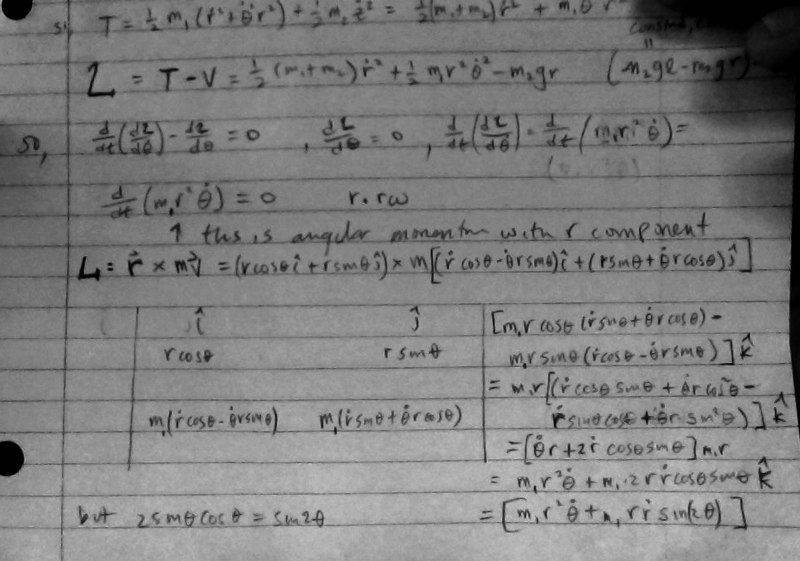 T = ½ m₁ (ṙ² + θ̇² r²) + ½ m₂ ṙ² = ½ (m₁+m₂) ṙ² + m₁ θ̇ r²
L = T - V = ½ (m₁+m₂) ṙ² + ½ m₁r² θ̇² - m₂gr (m₂gl - m₂gr)
so, d/dt (dL/dθ̇) - dL/dθ = 0 , dL/dθ = 0 , d/dt (dL/dθ̇) = d/dt (m₁r² θ̇) =
d/dt (m₁r² θ̇) = 0 r.rω
↑ this is angular momentum with r component
L = r⃗ × mv⃗ = (rcosθ î + rsinθ ĵ) × m[(ṙ cosθ - θ̇rsinθ) î + (ṙsinθ + θ̇rcosθ) ĵ]
î ĵ [m₁r cosθ (ṙsinθ + θ̇rcosθ) -
rcosθ rsinθ m₁r sinθ (ṙcosθ - θ̇rsinθ)] k̂
= m₁r[(ṙ cosθ sinθ + θ̇r cos²θ -
m₁(ṙcosθ - θ̇rsinθ) m₁(ṙsinθ + θ̇rcosθ) ṙ sinθ cosθ + θ̇r sin²θ)] k̂
= [θ̇r + 2ṙ cosθ sinθ] m₁r
= m₁r²θ̇ + m₁·2rṙ cosθ sinθ k̂
but 2sinθcosθ = sin2θ = [m₁r²θ̇ + m₁ rṙ sin(2θ)]